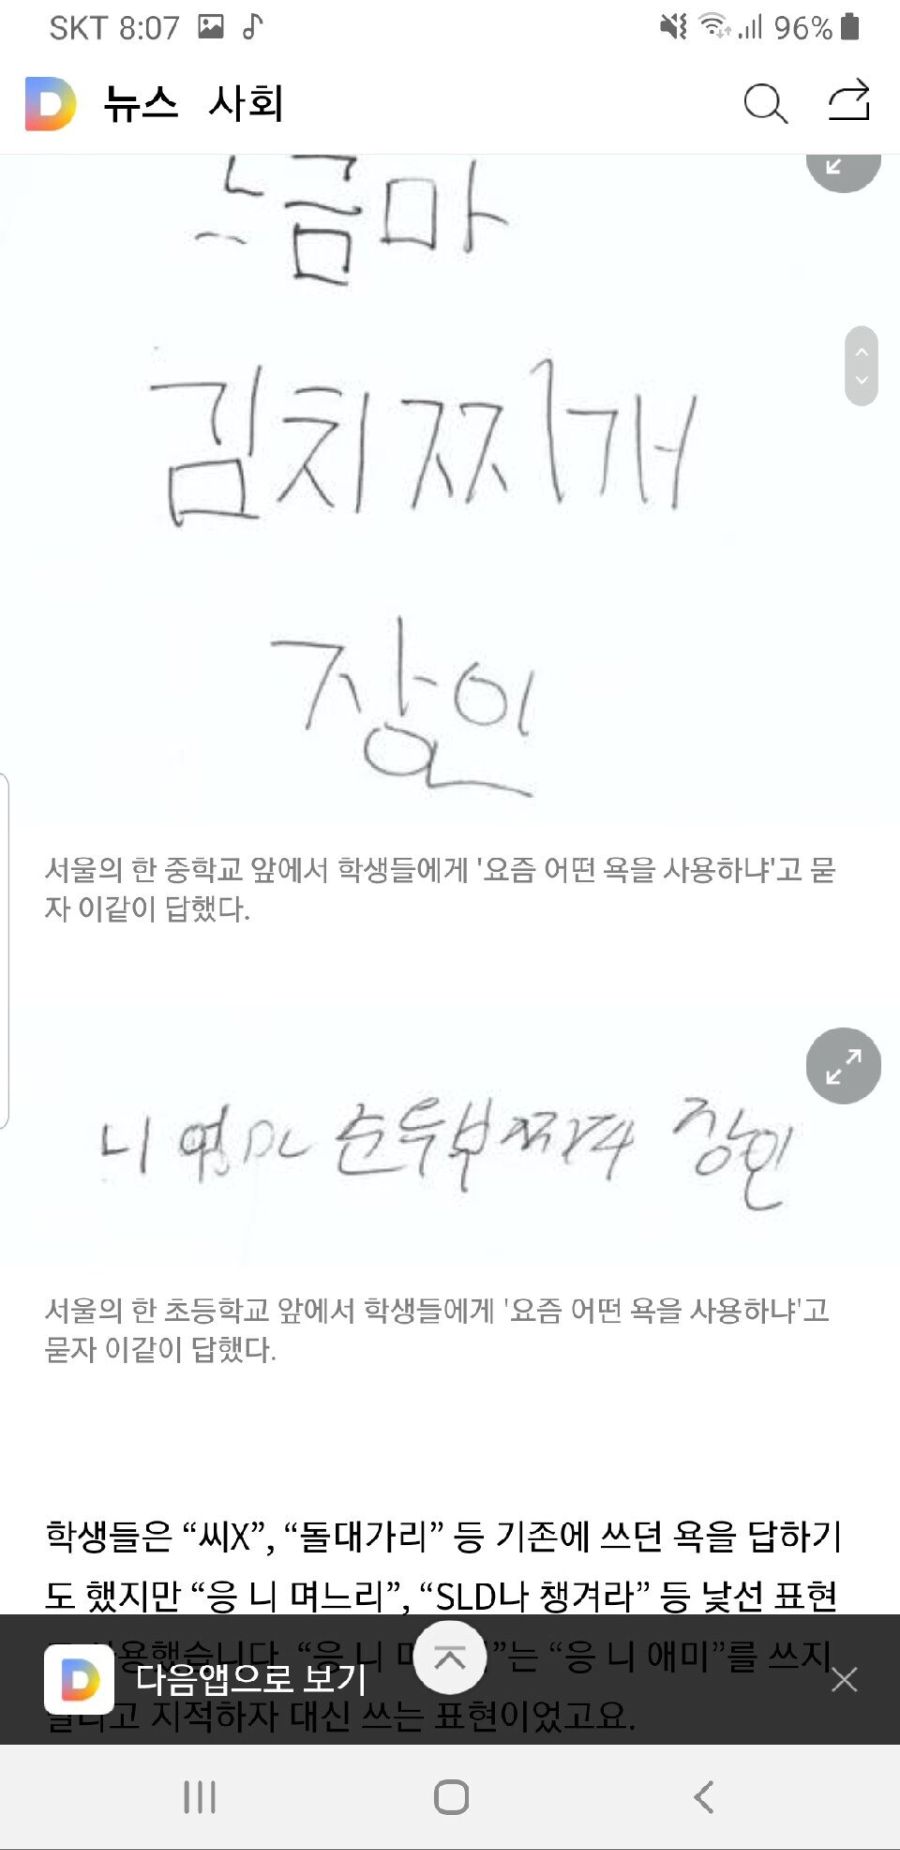 SKT 8:07 96%
D 뉴스 사회
느금마
김치찌개
장인
서울의 한 중학교 앞에서 학생들에게 '요즘 어떤 욕을 사용하냐'고 묻
자 이같이 답했다.
니 엄DL 순두부찌개 장인
서울의 한 초등학교 앞에서 학생들에게 '요즘 어떤 욕을 사용하냐'고
묻자 이같이 답했다.
학생들은 “씨X”, “돌대가리” 등 기존에 쓰던 욕을 답하기
도 했지만 “응 니 며느리”, “SLD나 챙겨라” 등 낯선 표현
사용했습니다. “응 니 는 “응 니 애미”를 쓰지
말라고 지적하자 대신 쓰는 표현이었고요.
D 다음앱으로 보기